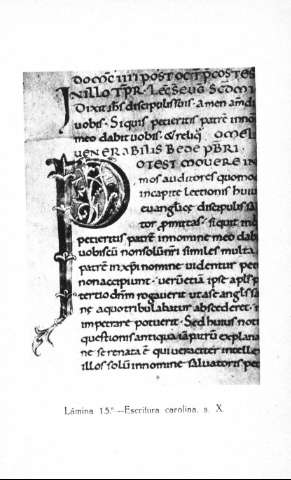 DOMC IIII POST OCT PCOS TES
IN ILLO TPR. Lec seun
Dixit ihs discipulis suis. amen am di
uobis. Siquis petieritis patrē inno
meo dabit uobis. & reliq. OMEL
UENERABILIS BEDE PBRI.
POTEST MOUERE IN
mos auditores quomo
incapite lectionis huiu
euanglicę discipulis sa
tor p mittas. siquit
petieritis patrē innomine meo dab
uobis cū nonsolū similes multa
patrē in xpi nomine uidentur pet
non accipiunt. uerū etiā ipse apls p
tertio dnm rogauerit ut a se angls sa
nę a quo tribulabatur abscederet.
impetrare potuerit. Sed huius
questionis antiqua explana
ne serenata ē qui ueraciter intelle
illos solū innomine saluatoris pet
Lámina 15.ª—Escritura carolina, s. X.